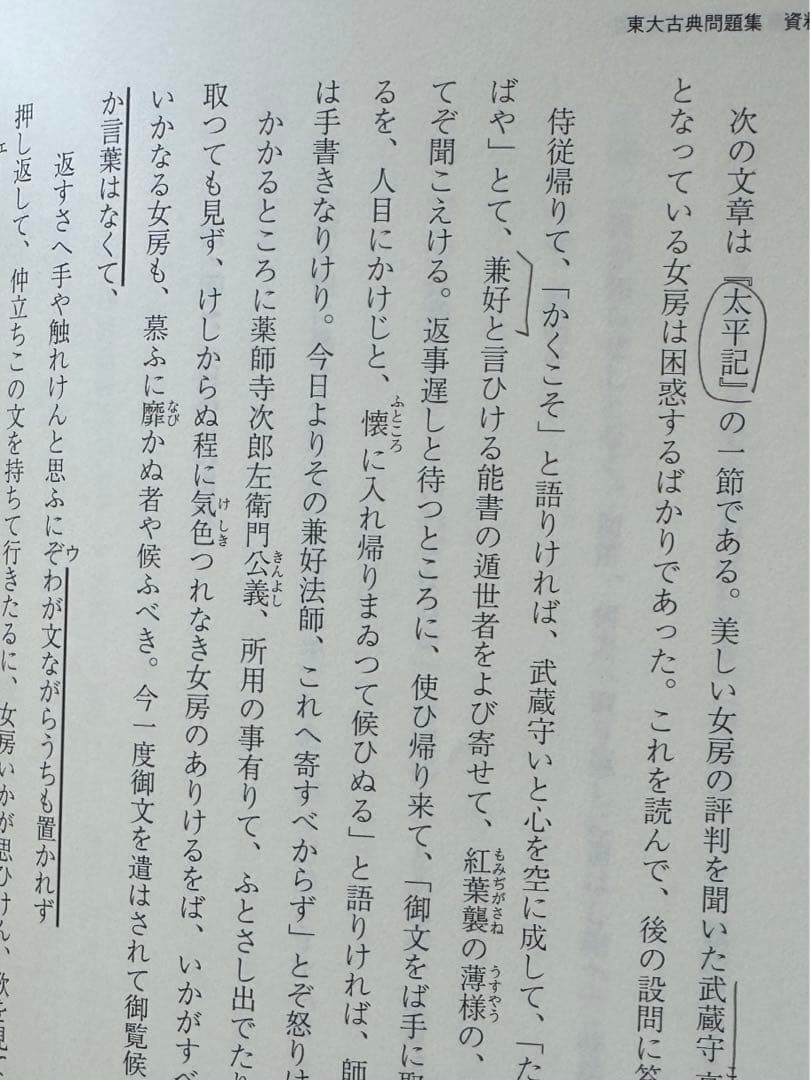 東大古典問題集　資料
次の文章は『太平記』の一節である。美しい女房の評判を聞いた武蔵守
となっている女房は困惑するばかりであった。これを読んで、後の設問に答
侍従帰りて、「かくこそ」と語りければ、武蔵守いと心を空に成して、「た
ばや」とて、兼好と言ひける能書の遁世者をよび寄せて、紅葉襲の薄様の、
もみぢがさね
うすやう
てぞ聞こえける。返事遅しと待つところに、使ひ帰り来て、「御文をば手に取
るを、人目にかけじと、懐に入れ帰りまゐつて候ひぬる」と語りければ、師
ふところ
は手書きなりけり。今日よりその兼好法師、これへ寄すべからず」とぞ怒りけ
かかるところに薬師寺次郎左衛門公義、所用の事有りて、ふとさし出でたり
きんよし
取つても見ず、けしからぬ程に気色つれなき女房のありけるをば、いかがすべ
けしき
いかなる女房も、慕ふに靡かぬ者や候ふべき。今一度御文を遣はされて御覧候
なび
か言葉はなくて、
返すさへ手や触れけんと思ふにぞわが文ながらうちも置かれず
ウ
押し返して、仲立ちこの文を持ちて行きたるに、女房いかが思ひけん、歌を見て、
エ